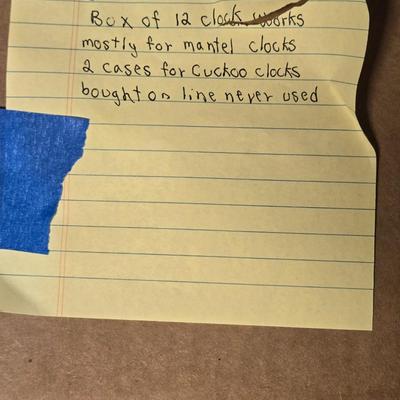 Box of 12 clock works
mostly for mantel clocks
2 cases for Cuckoo clocks
bought on line never used